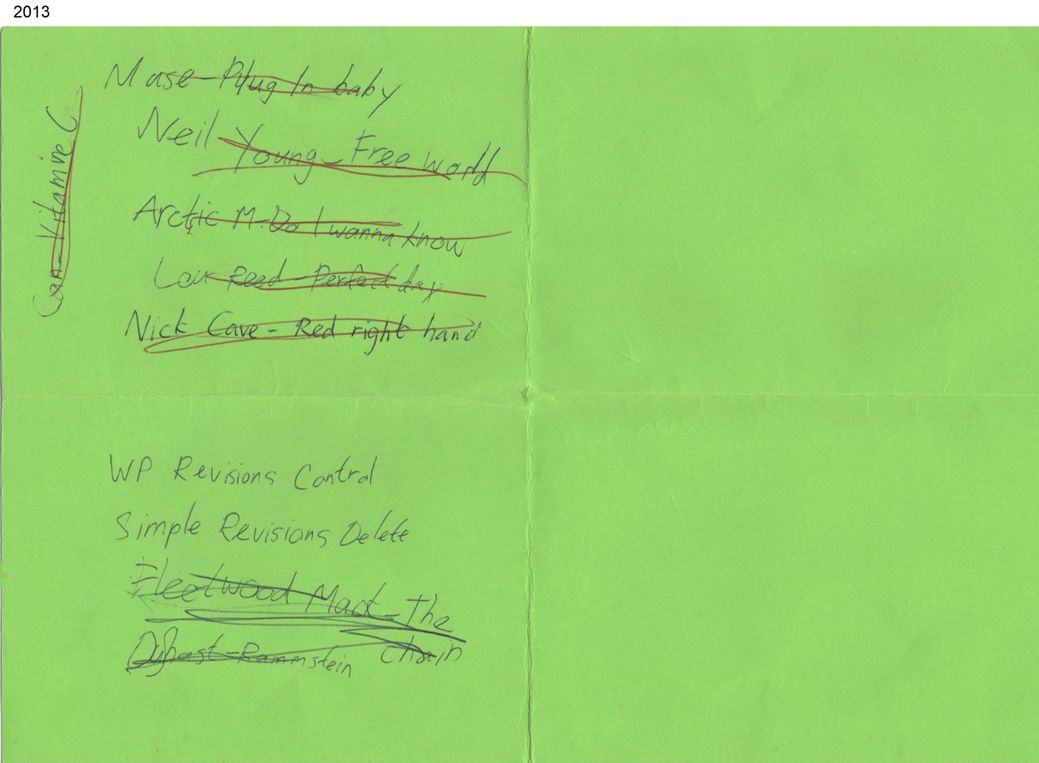 2013
Muse-Plug In baby
Neil Young-Free world
Arctic M-Do I wanna know
Lou Reed-Perfect day
Nick Cave- Red right hand
Can-Vitamine C
WP Revisions Control
Simple Revisions Delete
Fleetwood Mack-The
Chain
Duhast-Rammstein